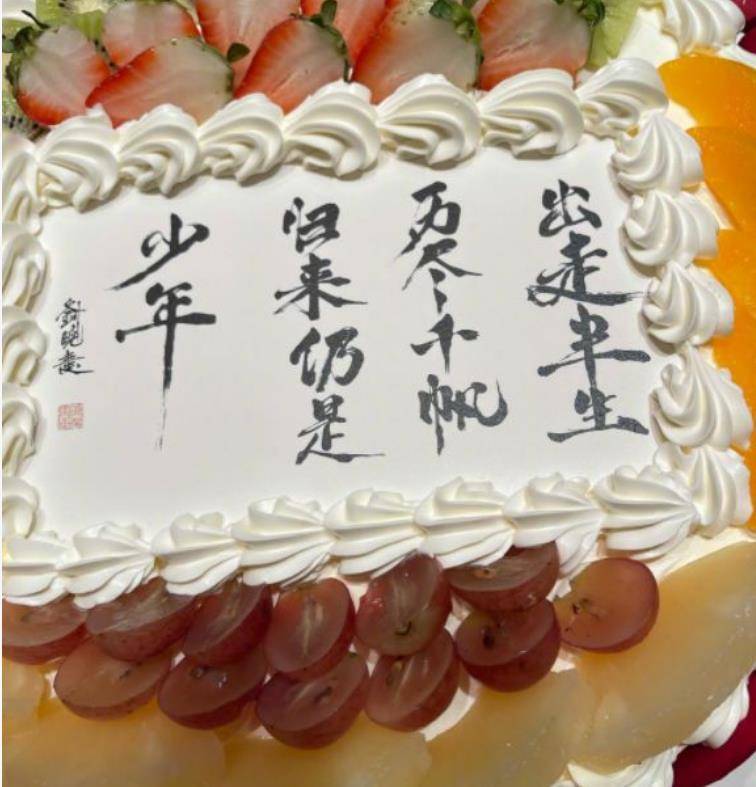 出走半生
历尽千帆
归来仍是
少年